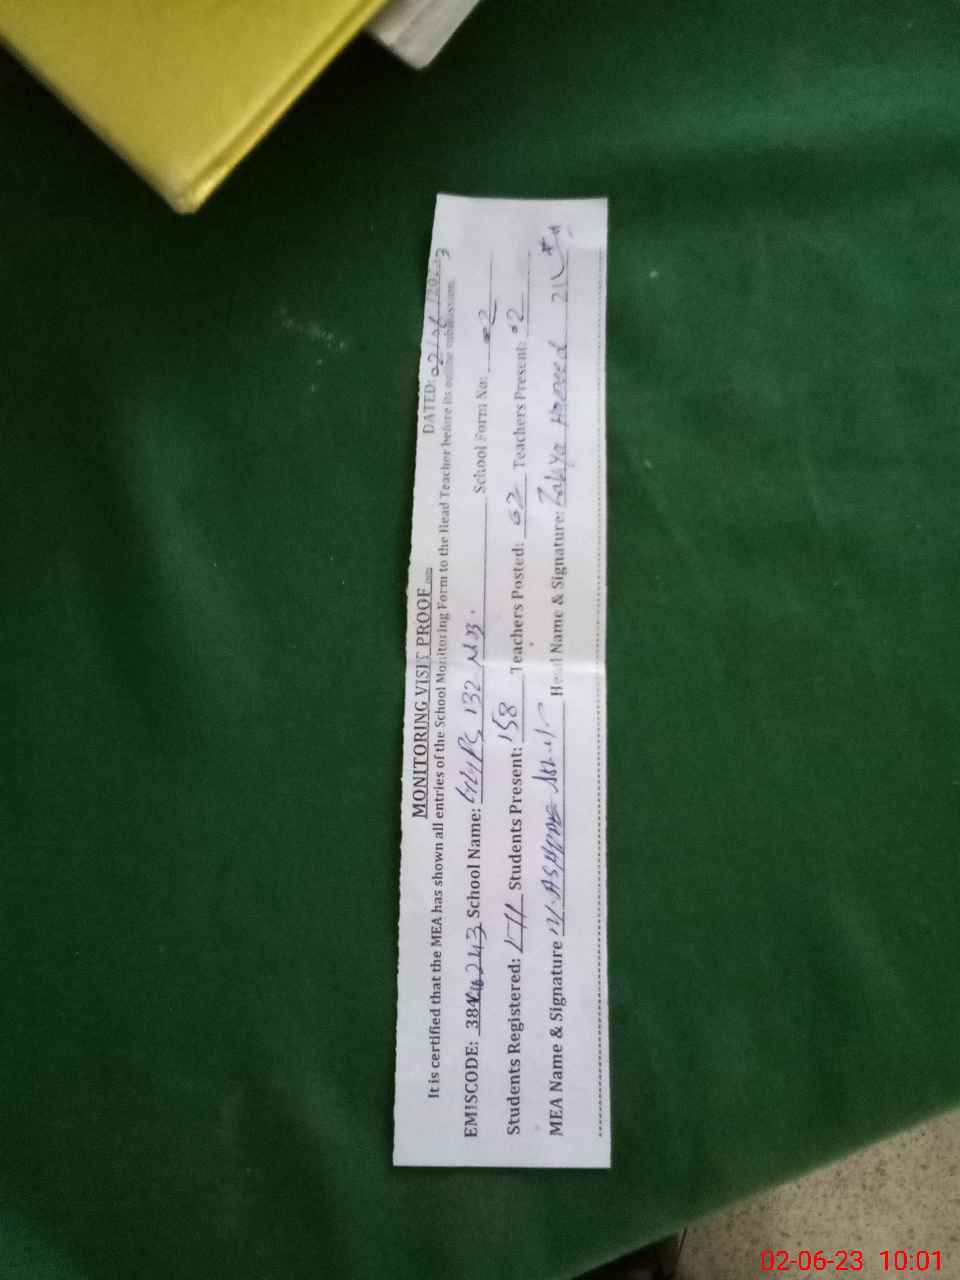 MONITORING VISIT PROOF
DATED: 02/06/2023
It is certified that the MEA has shown all entries of the School Monitoring Form to the Head Teacher before its online submission.
EMISCODE: 384 243 School Name: 132 NB. School Form No: 02
Students Registered: 171 Students Present: 158 Teachers Posted: 02 Teachers Present: 02
MEA Name & Signature Head Name & Signature: Hameed
02-06-23 10:01